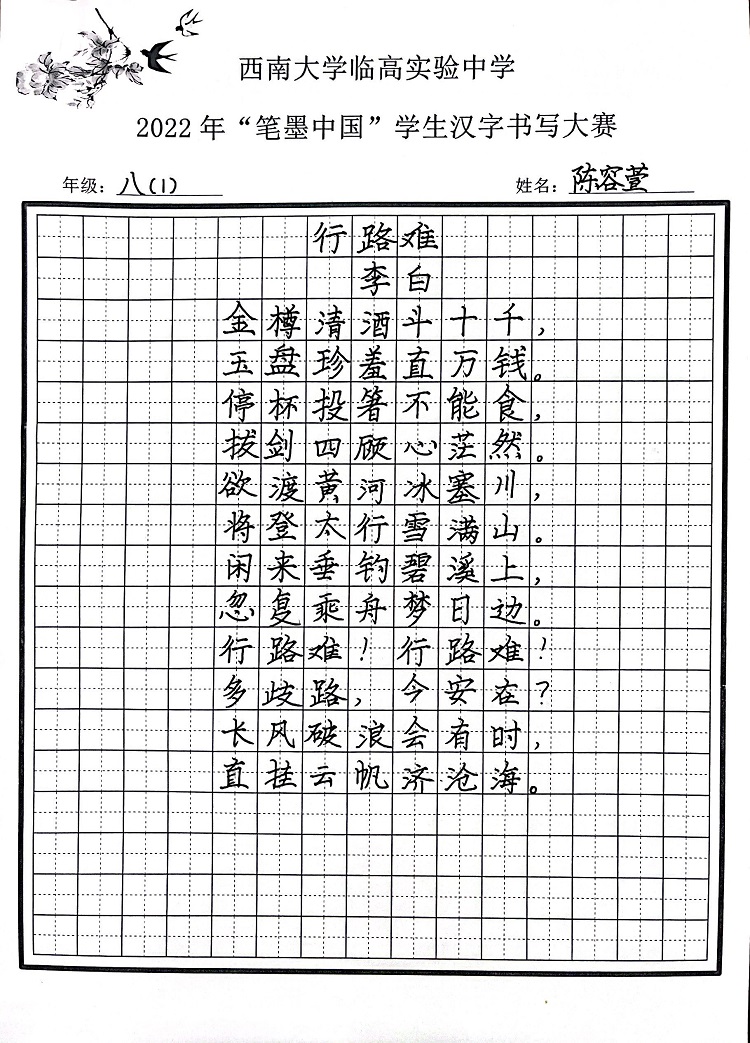 西南大学临高实验中学
2022年“笔墨中国”学生汉字书写大赛
年级：八(1) 姓名：陈容萱
行路难
李白
金樽清酒斗十千，
玉盘珍羞直万钱。
停杯投箸不能食，
拔剑四顾心茫然。
欲渡黄河冰塞川，
将登太行雪满山。
闲来垂钓碧溪上，
忽复乘舟梦日边。
行路难！行路难！
多歧路，今安在？
长风破浪会有时，
直挂云帆济沧海。